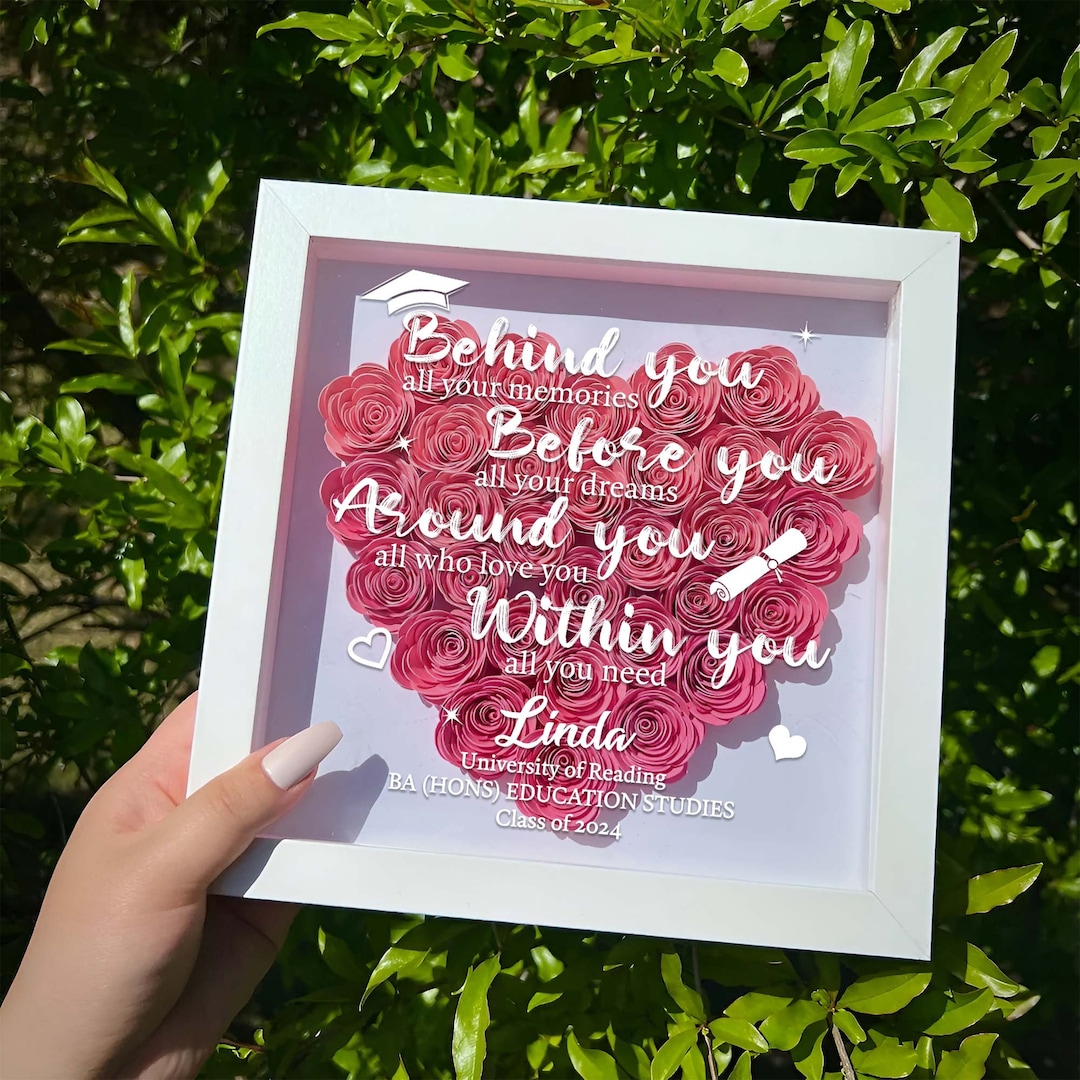 Behind you
all your memories
Before you
all your dreams
Around you
all who love you
Within you
all you need
Linda
University of Reading
BA (HONS) EDUCATION STUDIES
Class of 2024